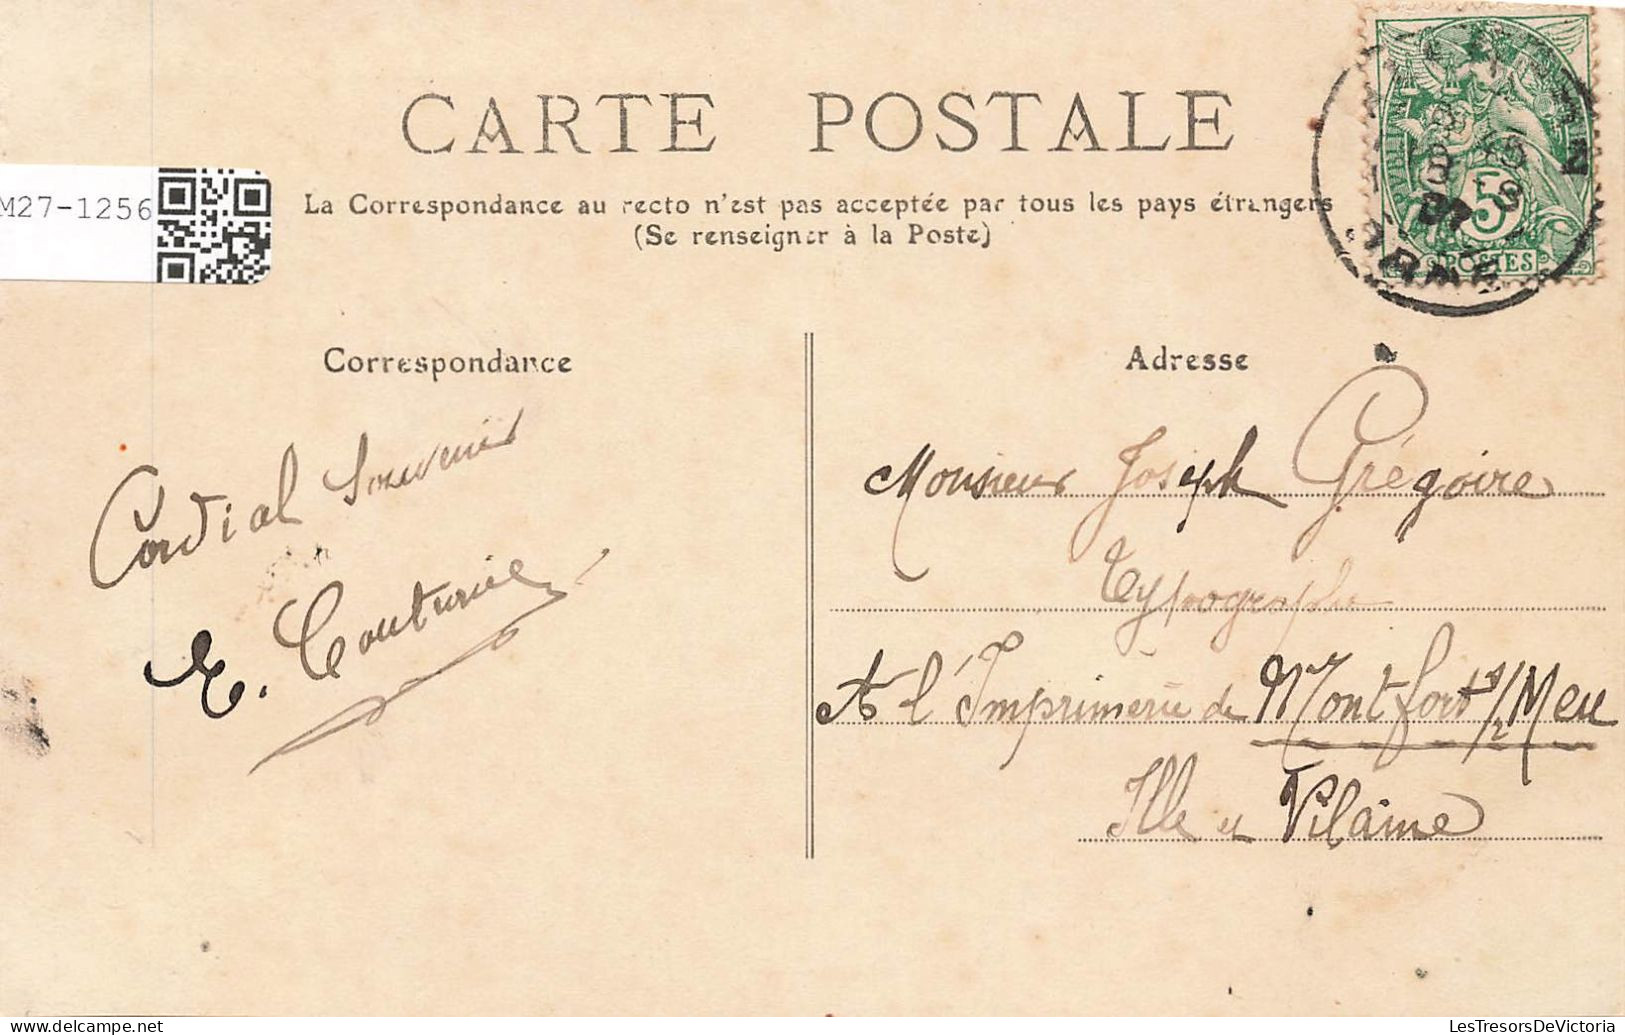 CARTE POSTALE
La Correspondance au recto n'est pas acceptée par tous les pays étrangers
(Se renseigner à la Poste)
M27-1256
5
POSTES
07
Correspondance
Adresse
Cordial Souvenir
E. Couturier
Monsieur Joseph Grégoire
Typographe
A l'Imprimerie de Montfort s/Meu
Ille et Vilaine
LesTresorsDeVictoria